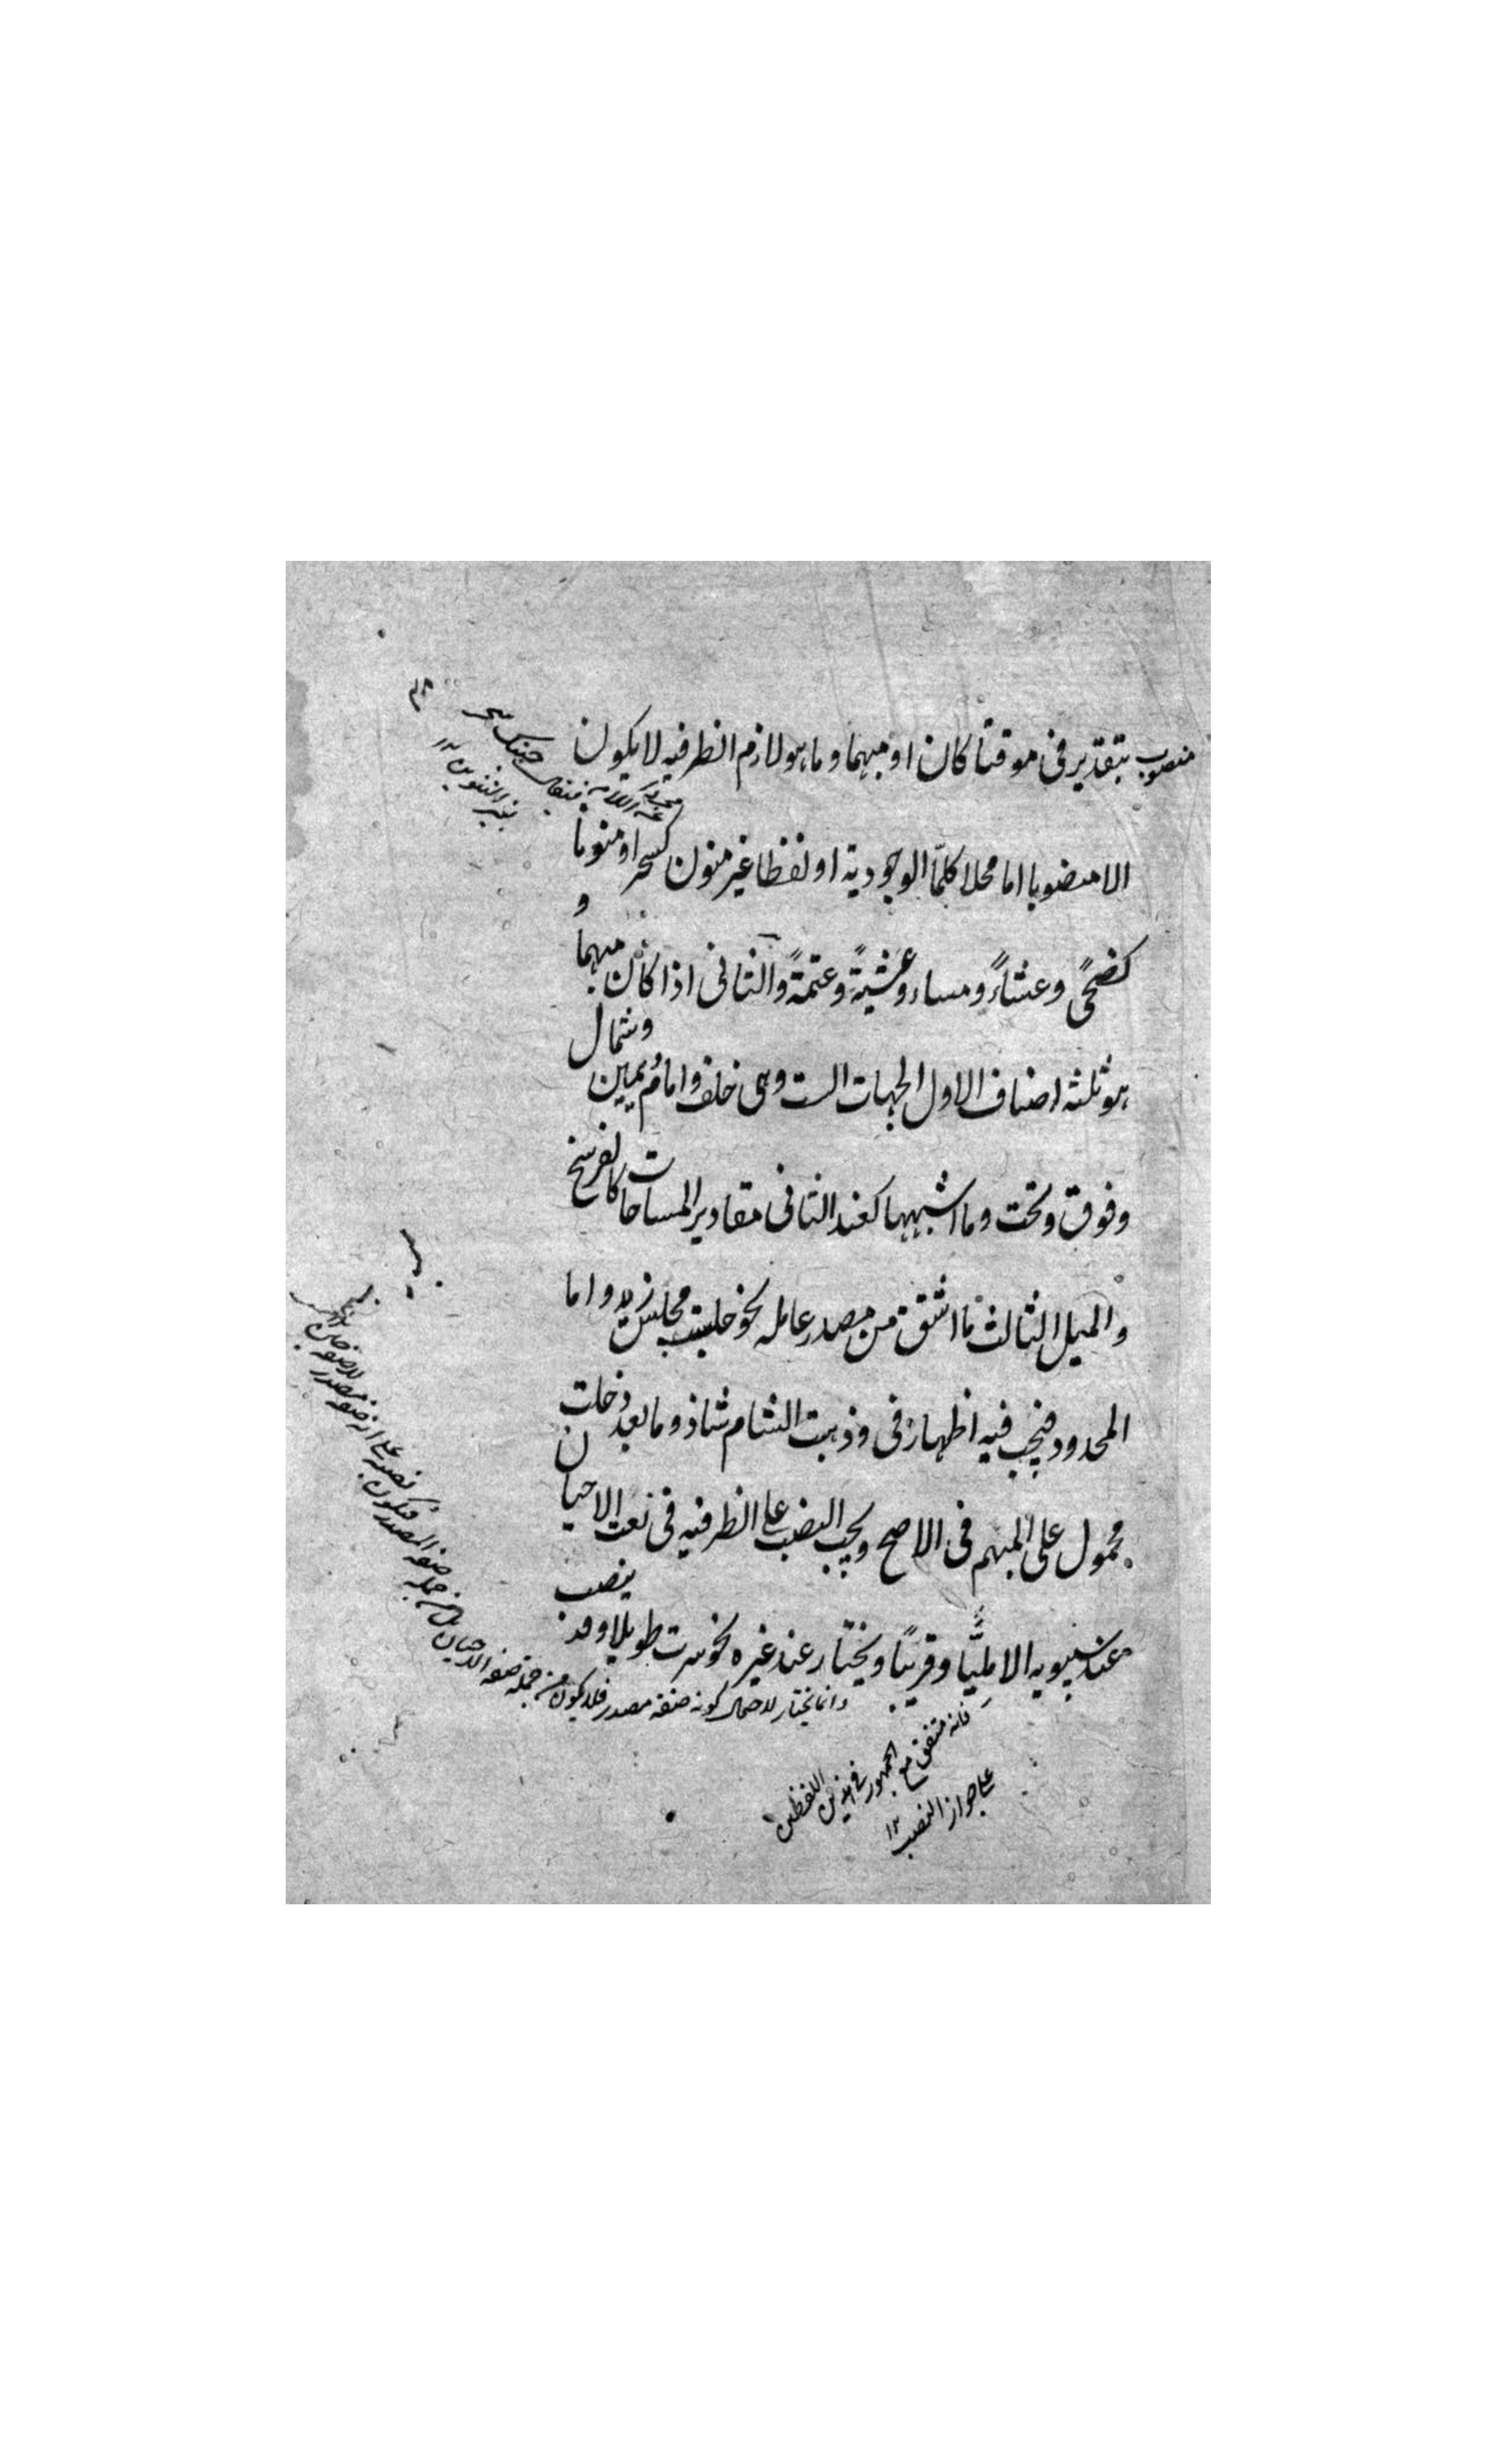 منصوب بتقدير فى موقتا كان او مبهما وما هو لازم الظرفيه لا يكون
الا منصوبا اما محلا كلمّا الوجودية او لفظا غير منون كسحر او منونا
كضحًى وعشاءً ومساء وعشيّةً وعتمةً والثانى اذا كان مبهما و
هو ثلثه اصناف الاول الجهات الست وهى خلف وامام ويمين وشمال
وفوق وتحت وما اشبهها كعند الثانى مقادير المساحات كالفرسخ
والميل الثالث ما اشتق من مصدر عامله نحو جلست مجلس زيد واما
المحدود فيجب فيه اظهار فى وذهبت الشام شاذ وما بعد دخلت
محمول على المبهم فى الاصح ويجب النصب على الظرفيه فى نعت الاحيان
عند سيبويه الا مليًّا وقريبًا ويختار عند غيره نحو سرت طويلا وقد ينصب
مجردا عن اللام
بغير التنوين ١٢
وانما يختار لاحتمال كونه صفة مصدر فلا يكون من جملة صفه الاحيان
فانه متفق مع الجمهور فى هذين اللفظين
على جواز النصب ١٢